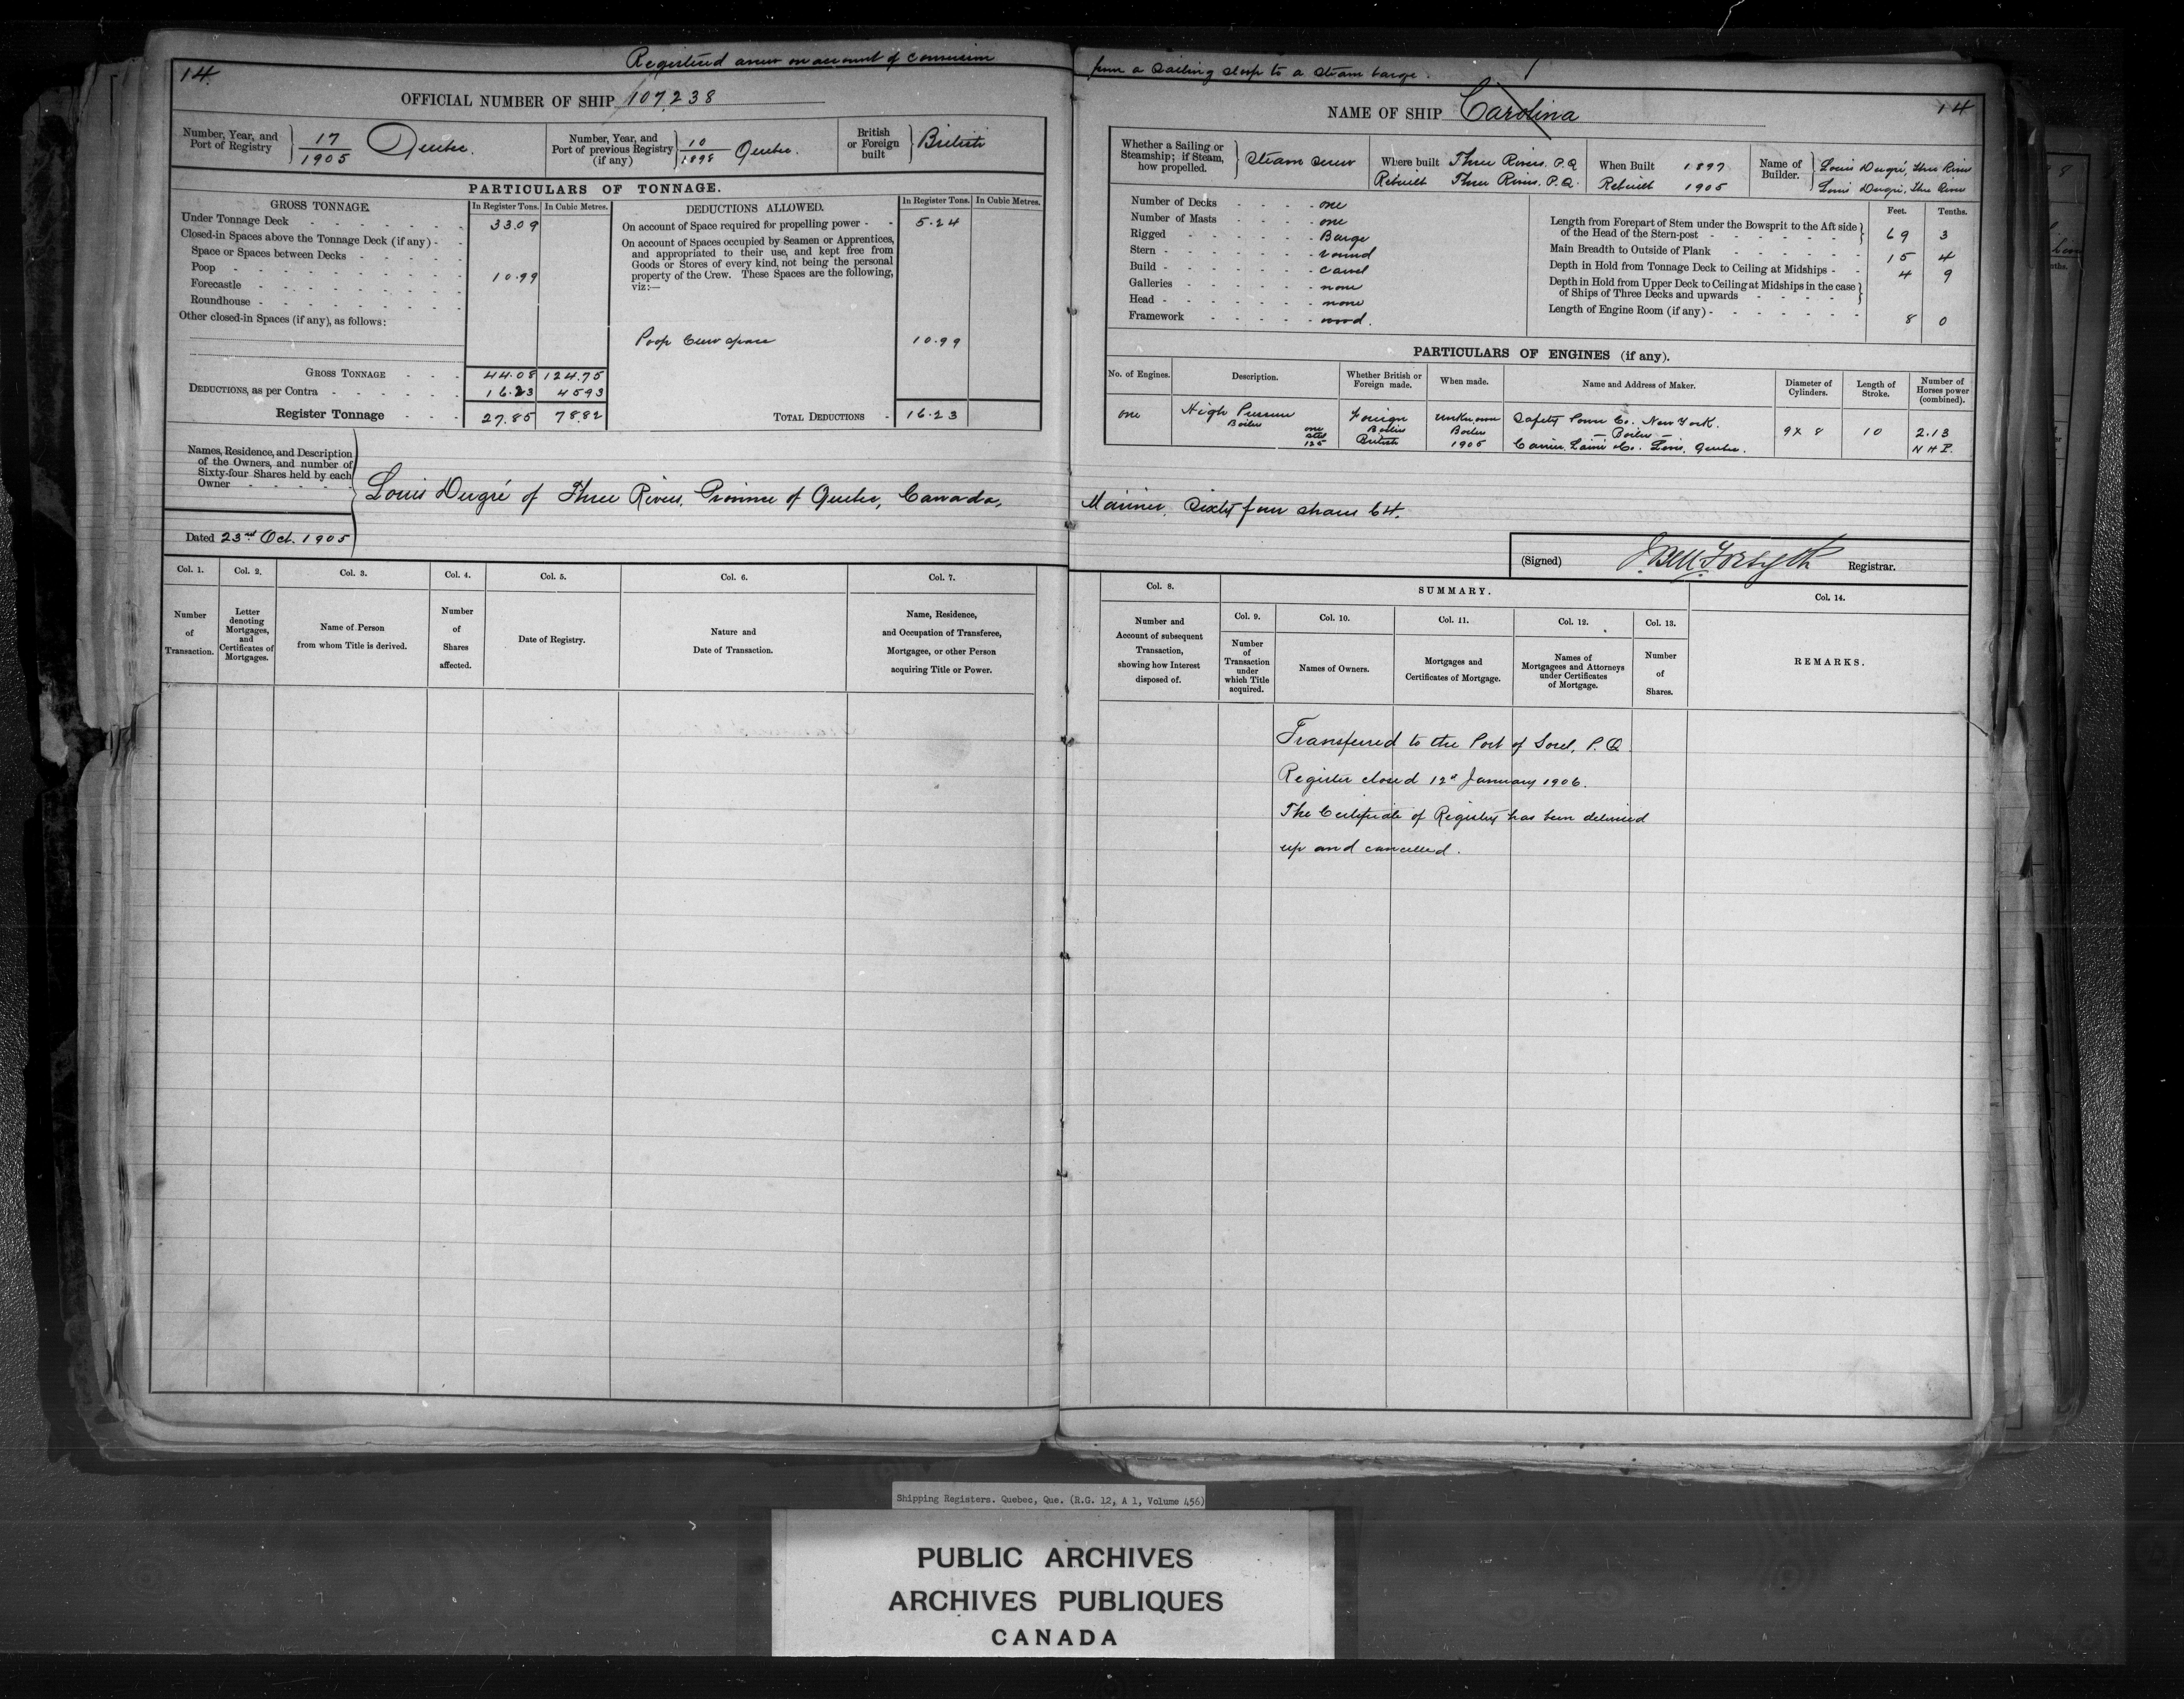 Registered anew on account of conversion from a Sailing sloop to a steam barge.
14
OFFICIAL NUMBER OF SHIP 107,238
Number, Year, and Port of Registry 17/1905 Quebec.
Number, Year, and Port of previous Registry (if any) 10/1898 Quebec.
British or Foreign built British
PARTICULARS OF TONNAGE.
GROSS TONNAGE. In Register Tons. In Cubic Metres.
Under Tonnage Deck - 33.09
Closed-in Spaces above the Tonnage Deck (if any) -
Space or Spaces between Decks -
Poop - 10.99
Forecastle -
Roundhouse -
Other closed-in Spaces (if any), as follows:
GROSS TONNAGE - 44.08 124.75
DEDUCTIONS, as per Contra - 16.23 45.93
Register Tonnage - 27.85 78.82
DEDUCTIONS ALLOWED. In Register Tons. In Cubic Metres.
On account of Space required for propelling power - 5.24
On account of Spaces occupied by Seamen or Apprentices,
and appropriated to their use, and kept free from
Goods or Stores of every kind, not being the personal
property of the Crew. These Spaces are the following,
viz:—
Poop Crew space 10.99
TOTAL DEDUCTIONS - 16.23
Names, Residence, and Description
of the Owners, and number of
Sixty-four Shares held by each
Owner -
Louis Dugré of Three Rivers, Province of Quebec, Canada, Mariner, Sixty four shares 64.
Dated 23rd Oct. 1905
NAME OF SHIP Carolina
14
Whether a Sailing or Steamship; if Steam, how propelled. Steam Screw
Where built Three Rivers, P.Q
Rebuilt Three Rivers, P.Q.
When Built 1897
Rebuilt 1905
Name of Builder. Louis Dugré, Three Rivers
Louis Dugré, Three Rivers
Number of Decks - one
Number of Masts - one
Rigged - Barge
Stern - round
Build - carvel
Galleries - none
Head - none
Framework - wood.
Feet. Tenths.
Length from Forepart of Stem under the Bowsprit to the Aft side
of the Head of the Stern-post - 69 3
Main Breadth to Outside of Plank - 15 4
Depth in Hold from Tonnage Deck to Ceiling at Midships - 4 9
Depth in Hold from Upper Deck to Ceiling at Midships in the case
of Ships of Three Decks and upwards -
Length of Engine Room (if any) - 8 0
PARTICULARS OF ENGINES (if any).
No. of Engines. Description. Whether British or Foreign made. When made. Name and Address of Maker. Diameter of Cylinders. Length of Stroke. Number of Horses power (combined).
one High Pressure Foreign unknown Safety Power Co. New York. 9 x 8 10 2.13
Boilers one steel 125 Boilers British Boiler 1905 — Boiler — Carrier, Lainé & Co. Levis, Quebec. N H P.
(Signed) J. Bell Forsyth Registrar.
Col. 1. Col. 2. Col. 3. Col. 4. Col. 5. Col. 6. Col. 7.
Number of Transaction.
Letter denoting Mortgages, and Certificates of Mortgages.
Name of Person from whom Title is derived.
Number of Shares affected.
Date of Registry.
Nature and Date of Transaction.
Name, Residence, and Occupation of Transferee, Mortgagee, or other Person acquiring Title or Power.
Col. 8. SUMMARY. Col. 14.
Col. 9. Col. 10. Col. 11. Col. 12. Col. 13.
Number and Account of subsequent Transaction, showing how Interest disposed of.
Number of Transaction under which Title acquired.
Names of Owners.
Mortgages and Certificates of Mortgage.
Names of Mortgagees and Attorneys under Certificates of Mortgage.
Number of Shares.
REMARKS.
Transferred to the Port of Sorel, P.Q
Register closed 12th January 1906.
The Certificate of Registry has been delivered
up and cancelled.
Shipping Registers. Quebec, Que. (R.G. 12, A 1, Volume 456)
PUBLIC ARCHIVES
ARCHIVES PUBLIQUES
CANADA